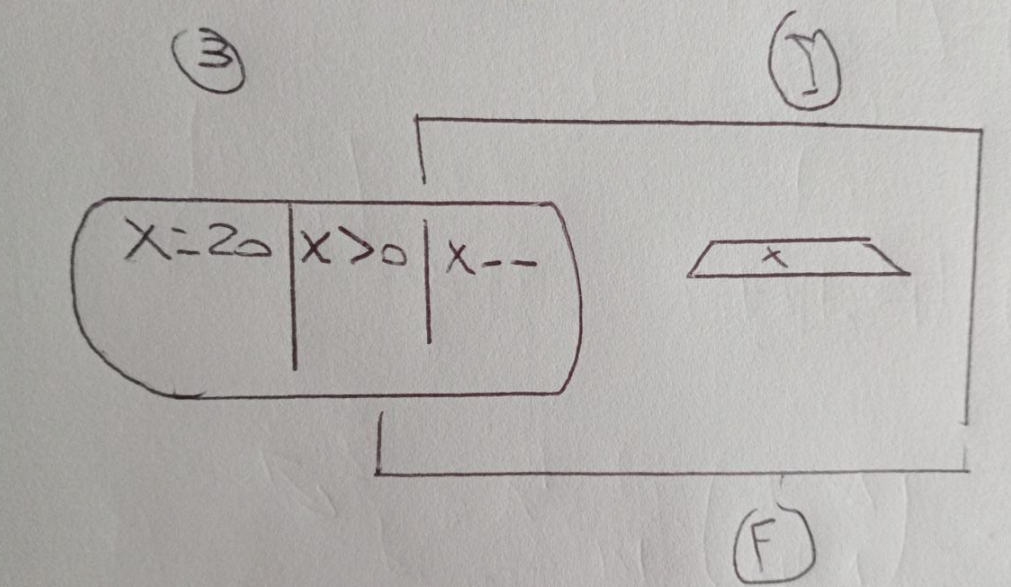 3
I
x=20 x>0 x--
x
F